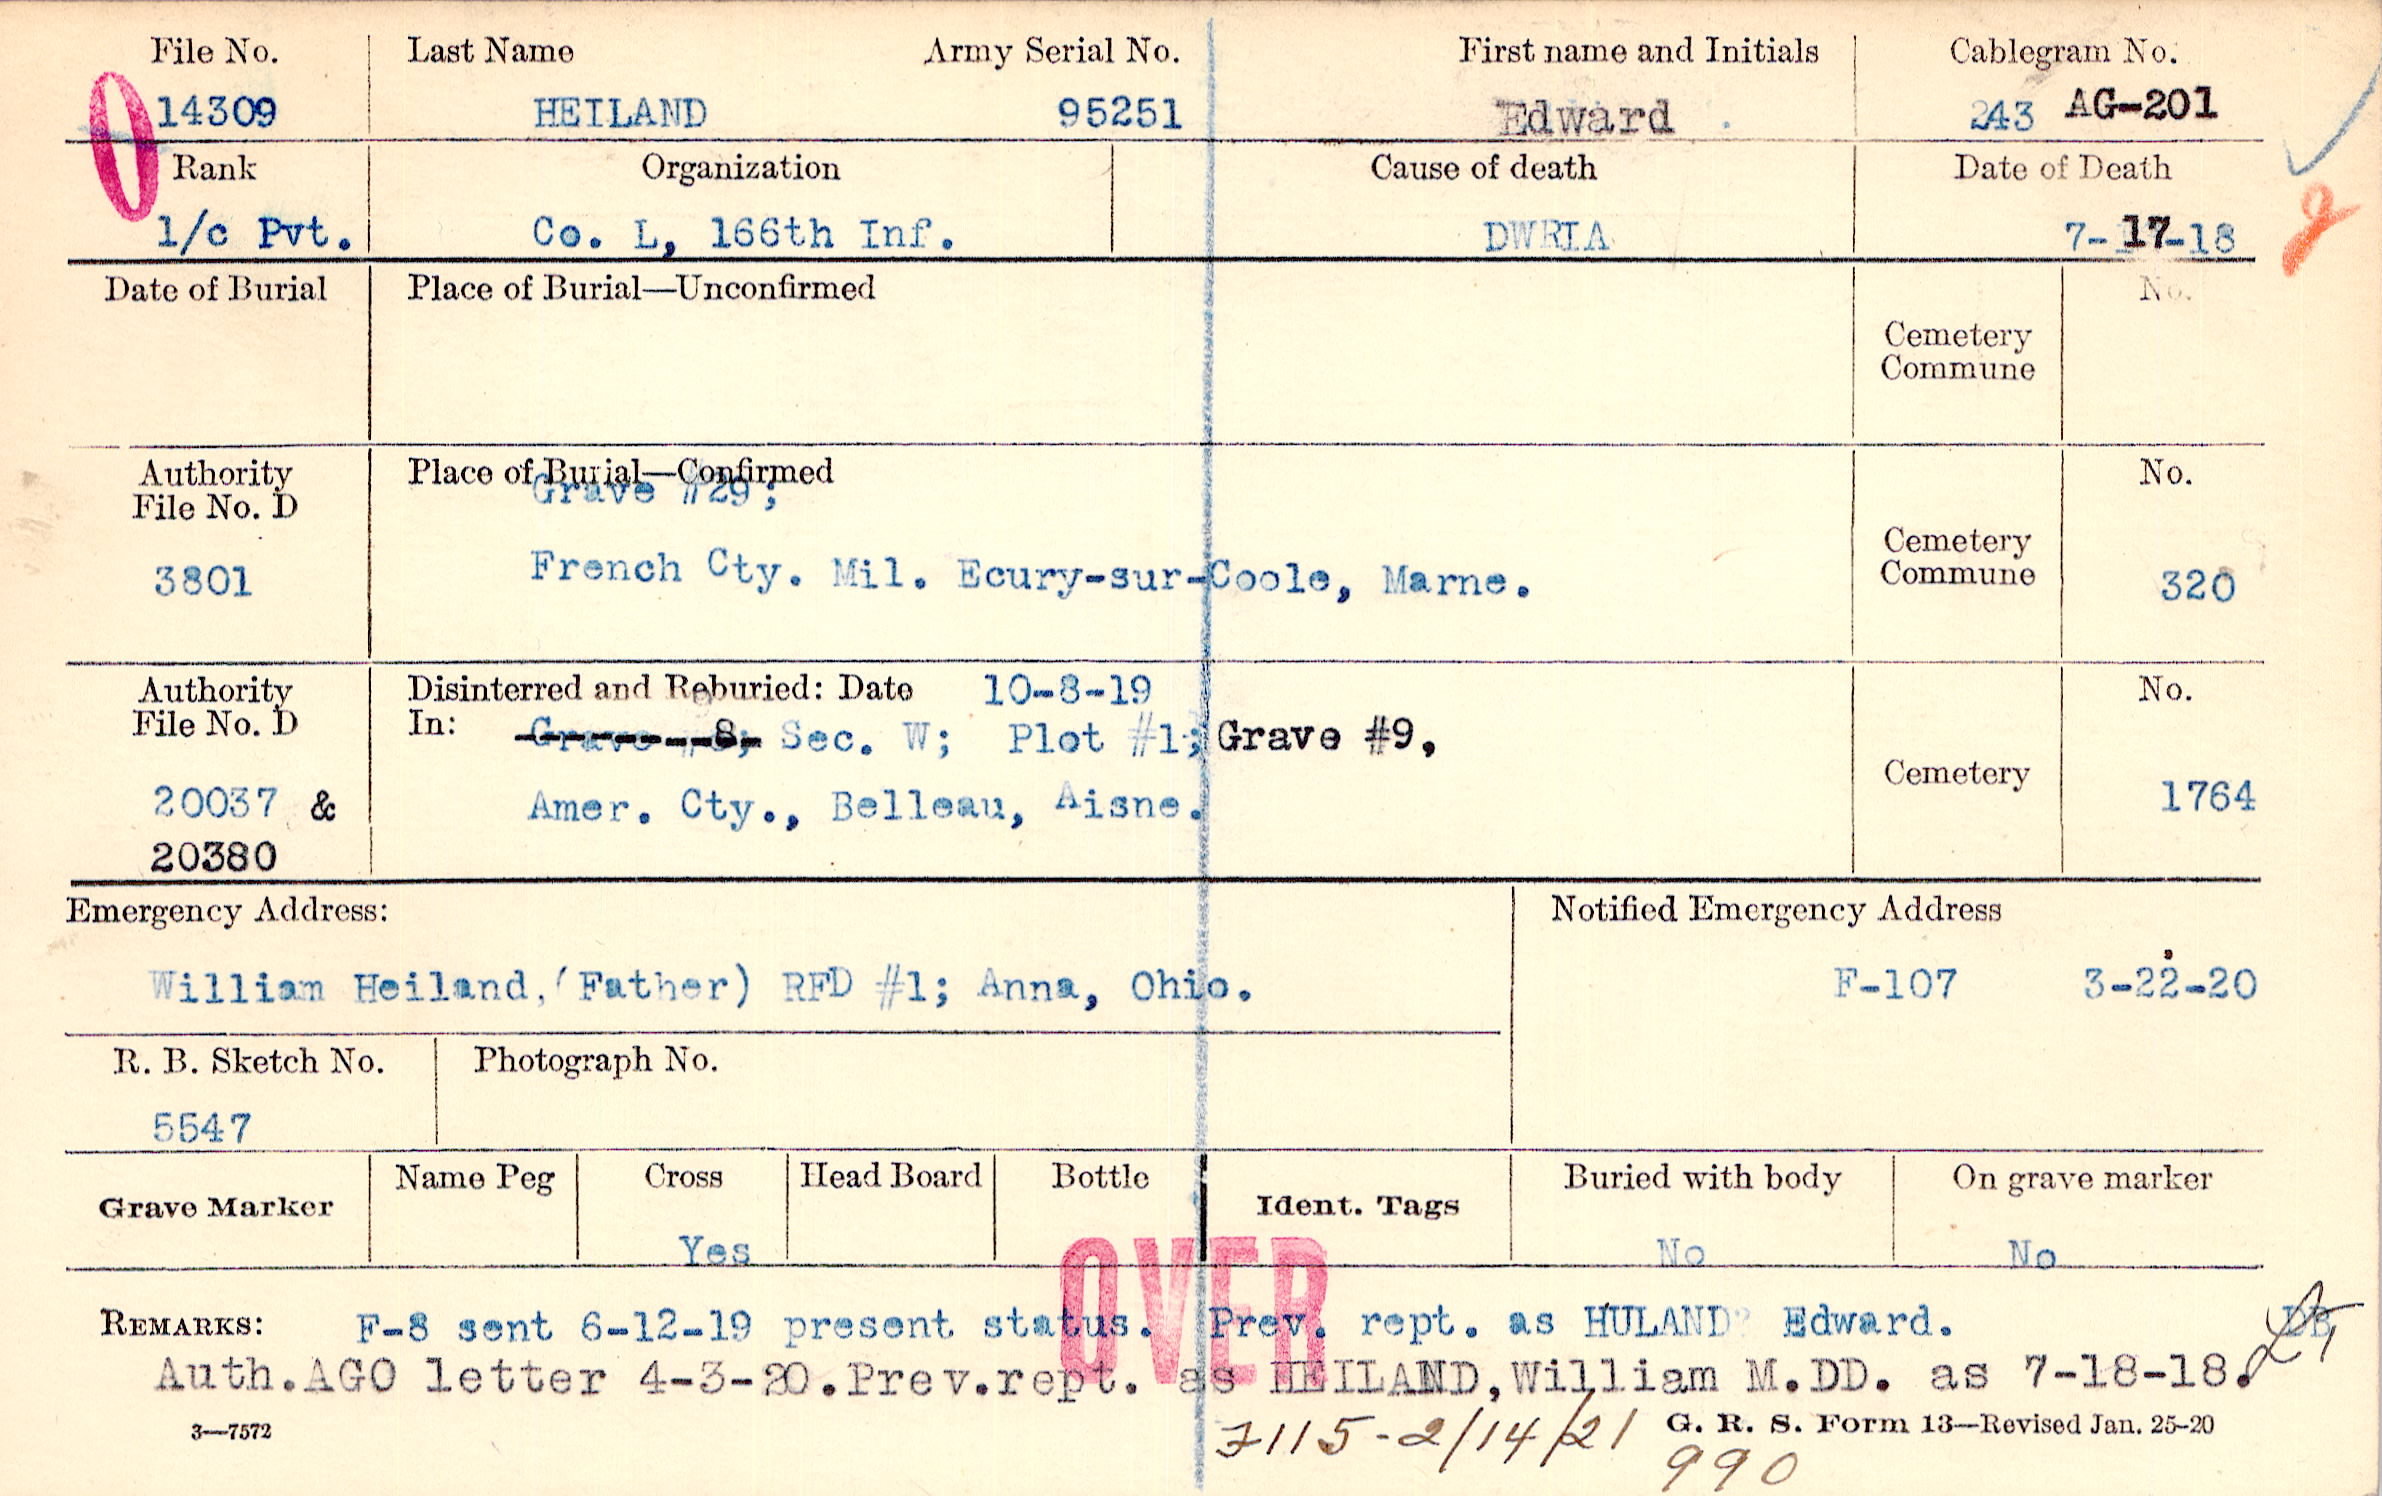 File No. Last Name Army Serial No. First name and Initials Cablegram No.
14309 HEILAND 95251 Edward 243 AG-201
Rank Organization Cause of death Date of Death
1/c Pvt. Co. L, 166th Inf. DWRIA 7-17-18
Date of Burial Place of Burial—Unconfirmed No.
Cemetery
Commune
Authority Place of Burial—Confirmed No.
File No. D Grave #29;
3801 French Cty. Mil. Ecury-sur-Coole, Marne. Cemetery
Commune 320
Authority Disinterred and Reburied: Date 10-8-19 No.
File No. D In: Grave #8; Sec. W; Plot #1; Grave #9,
Cemetery
20037 & Amer. Cty., Belleau, Aisne. 1764
20380
Emergency Address: Notified Emergency Address
William Heiland, (Father) RFD #1; Anna, Ohio. F-107 3-22-20
R. B. Sketch No. Photograph No.
5547
Grave Marker Name Peg Cross Head Board Bottle Ident. Tags Buried with body On grave marker
Yes No No
OVER
REMARKS: F-8 sent 6-12-19 present status. Prev. rept. as HULAND Edward.
Auth.AGO letter 4-3-20.Prev.rept. as HEILAND,William M.DD. as 7-18-18.
3—7572 7115-2/14/21 G. R. S. Form 13—Revised Jan. 25-20
990